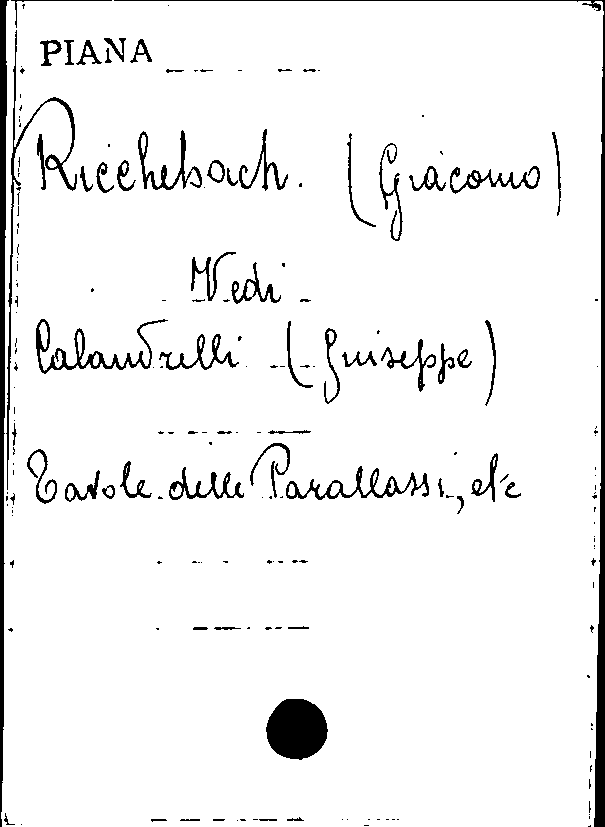 PIANA
Ricchebach. (Giacomo)
Vedi
Calandrelli (Giuseppe)
Tavole delle Parallassi, etc